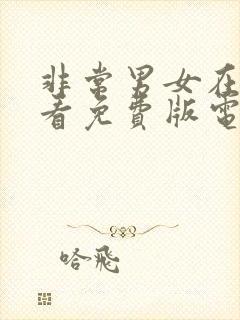 非常男女在
看免費版電
哈飛